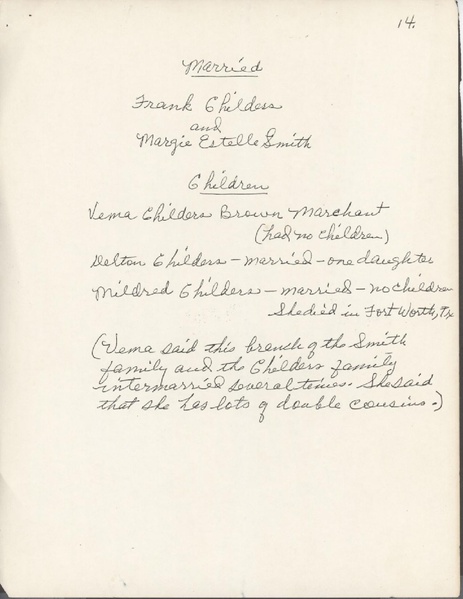 14.
Married
Frank Childers
and
Margie Estelle Smith
Children
Vema Childers Brown Marchant
(had no children)
Delton Childers - married - one daughter
Mildred Childers - married - no children
She died in Fort Worth, Tx
(Vema said this branch of the Smith
family and the Childers family
intermarried several times. She said
that she has lots of double cousins.)